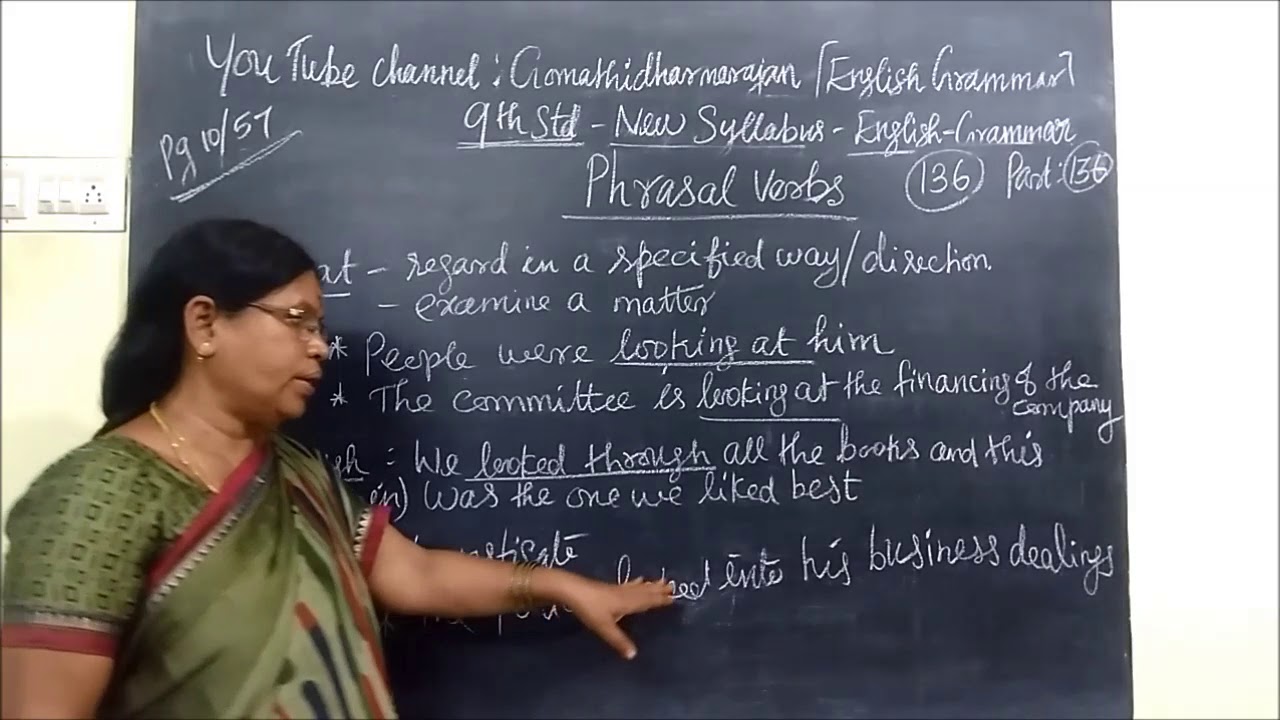 YouTube channel : Gomathidharmarajan [English Grammar]
Pg 10/57
9th Std - New Syllabus - English-Grammar
Phrasal Verbs 136 Part: 136
at - regard in a specified way/direction.
- examine a matter
* People were looking at him
* The committee is looking at the financing of the company
: We looked through all the books and this
in) was the one we liked best
looked into his business dealings